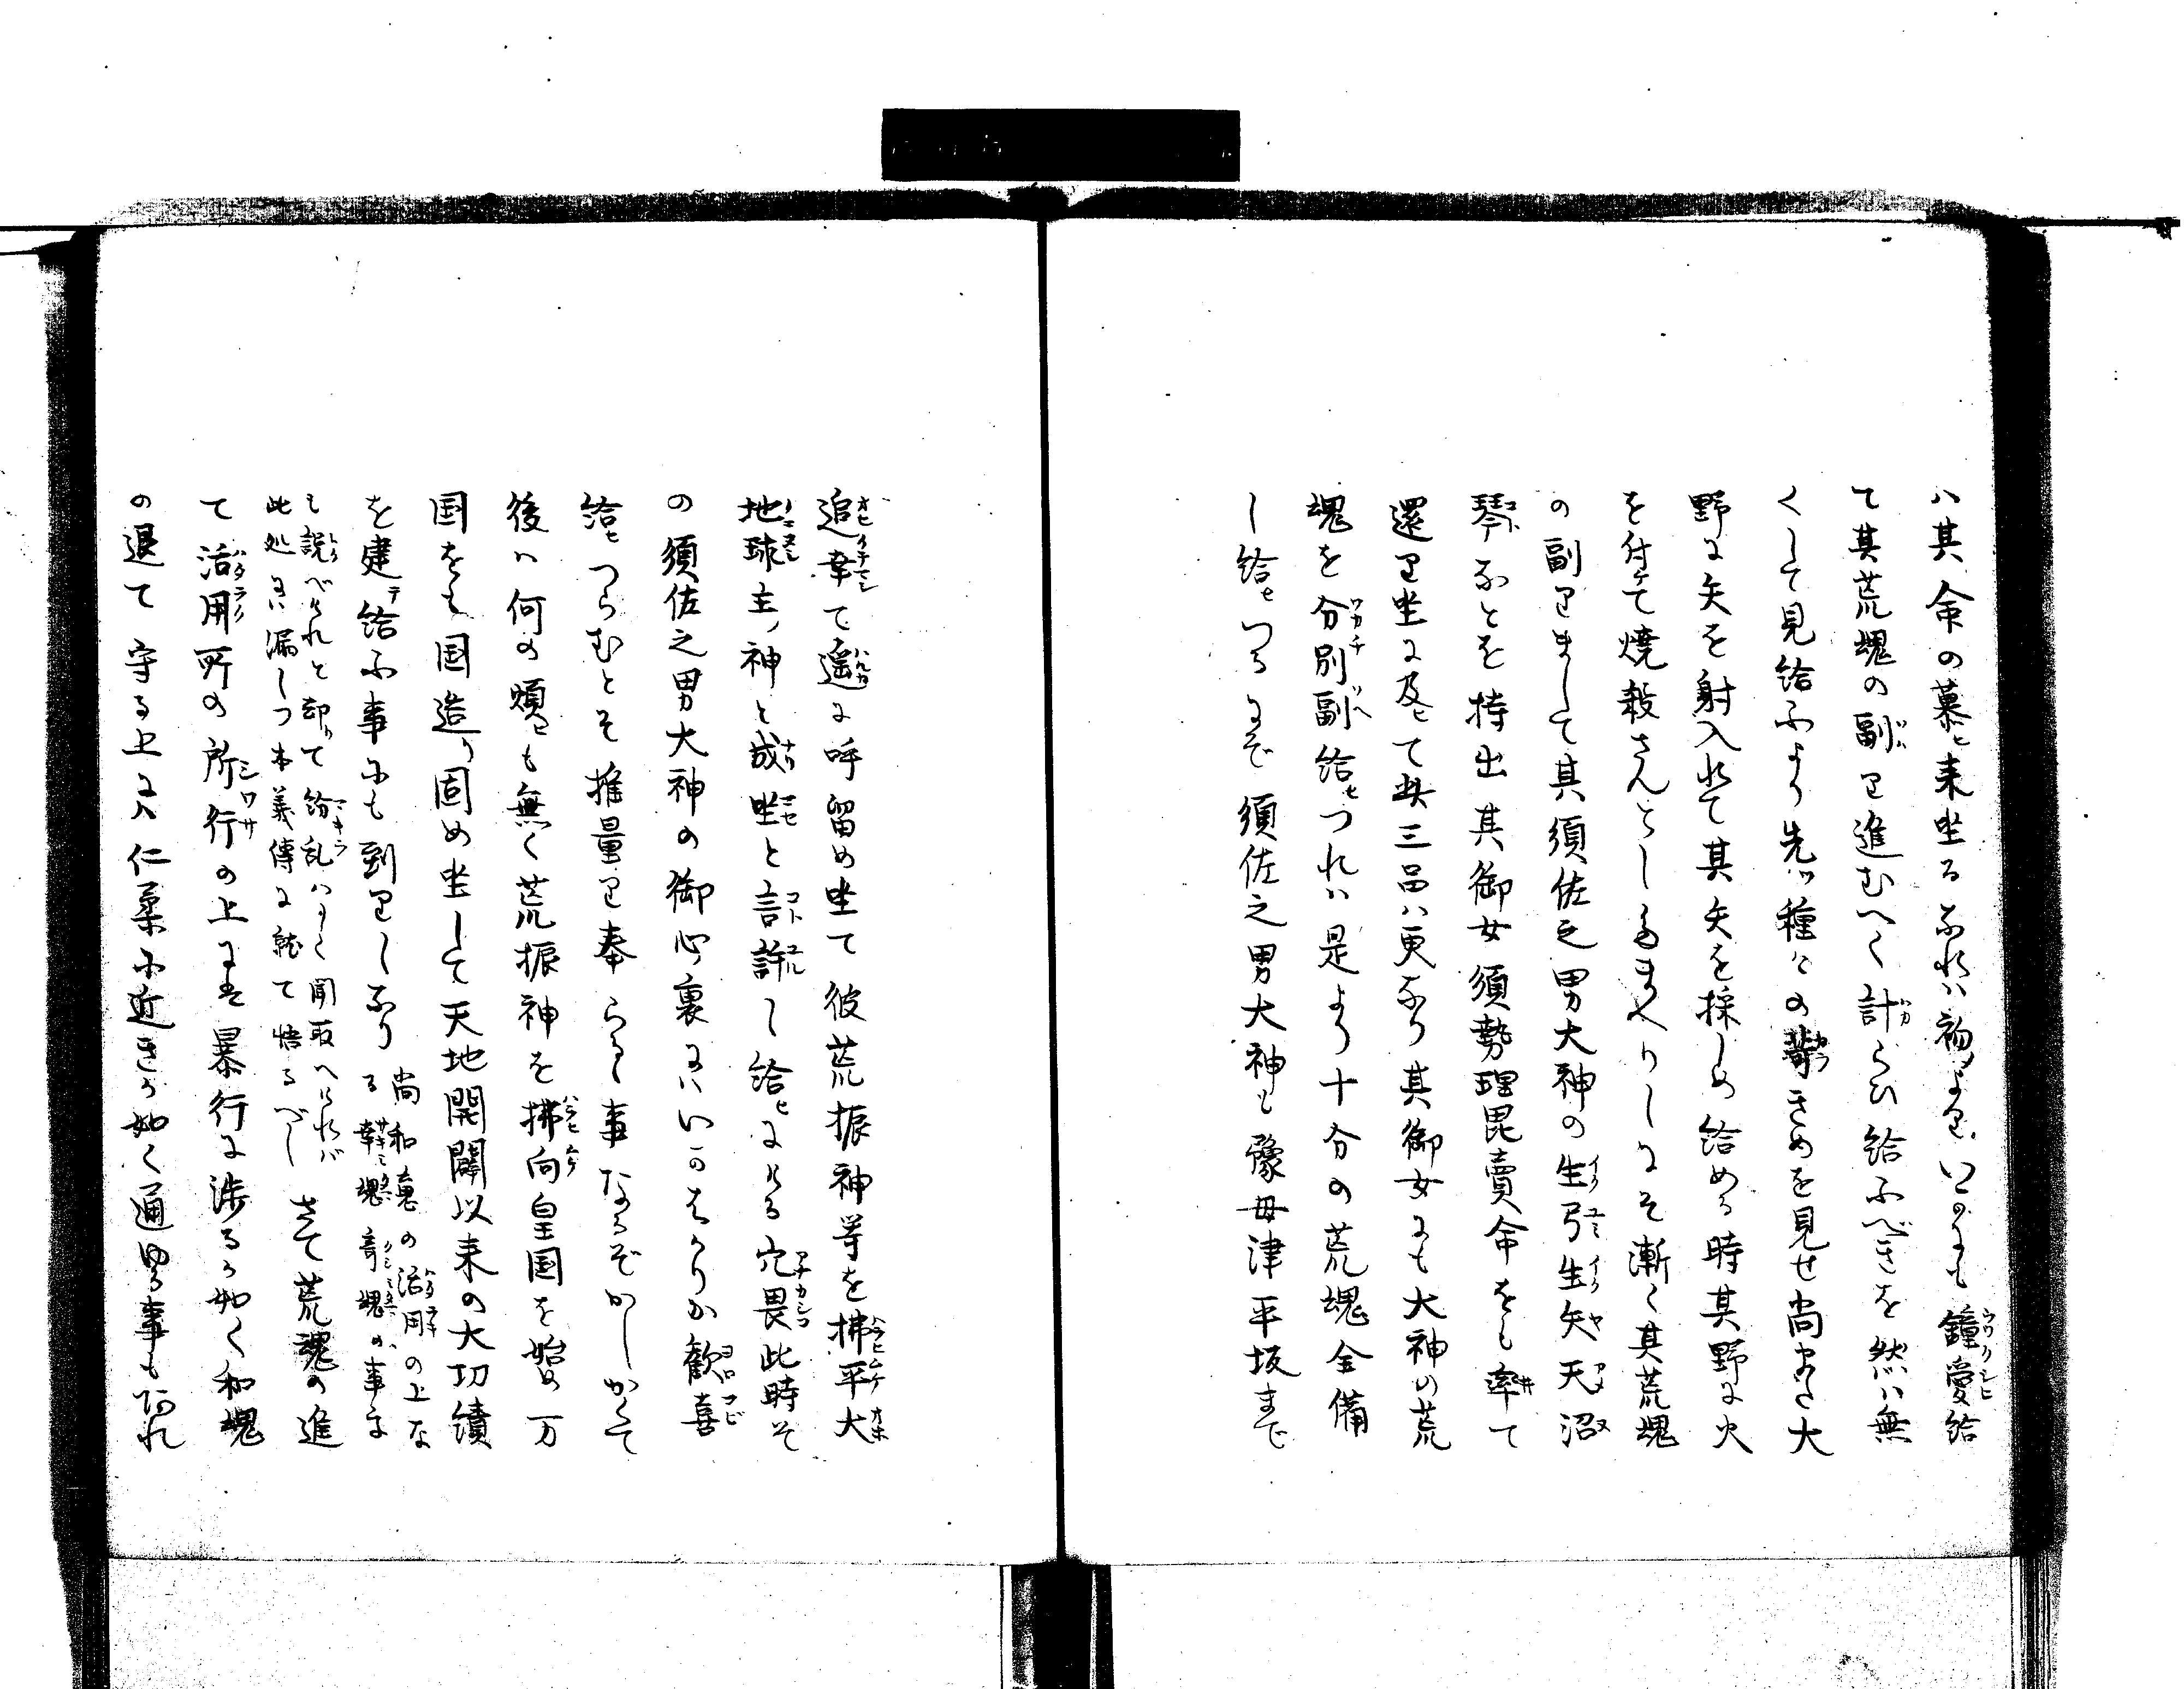 ハ其命の慕ヒ来坐る なれハ初より いかにも 鐘愛給
て其荒魂の副り進むへく計らひ給ふべきを然ハ無
くして見給ふより先ツ種々の きめを見せ尚 大
野に矢を射入れて其矢を採しめ給める時其野に火
を付ケて焼殺さんとし給まへりしにそ漸く其荒魂
の副りまして其須佐之男大神の生弓生矢天沼
琴なとを持出其御女須勢理毘賣命をも率て
還り坐に及ヒて其三品ハ更なり其御女にも大神の荒
魂を分別副給ヒつれハ是より十分の荒魂全備
し給ヒつるにぞ須佐之男大神も豫母津平坂まで
追幸て遥に呼留め坐て彼荒振神等を拂平大
地球主ノ神と成坐と言許し給ヒにける穴畏此時そ
の須佐之男大神の御心裏にハいかはかりか歓喜
給ヒつらむとそ推量り奉らるゝ事なるぞかしかくて
後ハ何の煩ヒも無く荒振神を拂向皇国を始め万
国をも国造り固め坐して天地開闢以来の大功績
を建テ給ふ事にも到りしなり 尚和魂の活用の上な
る幸魂奇魂の事まて
も説べけれと却りて紛乱ハしく聞取へけれバ
此処にハ漏しつ本義傳に就て悟るべし さて荒魂の進
て活用所の所行の上にハ暴行に渉るか如く和魂
の退て守る上にハ仁柔に近きか如く通ゆる事もあれ